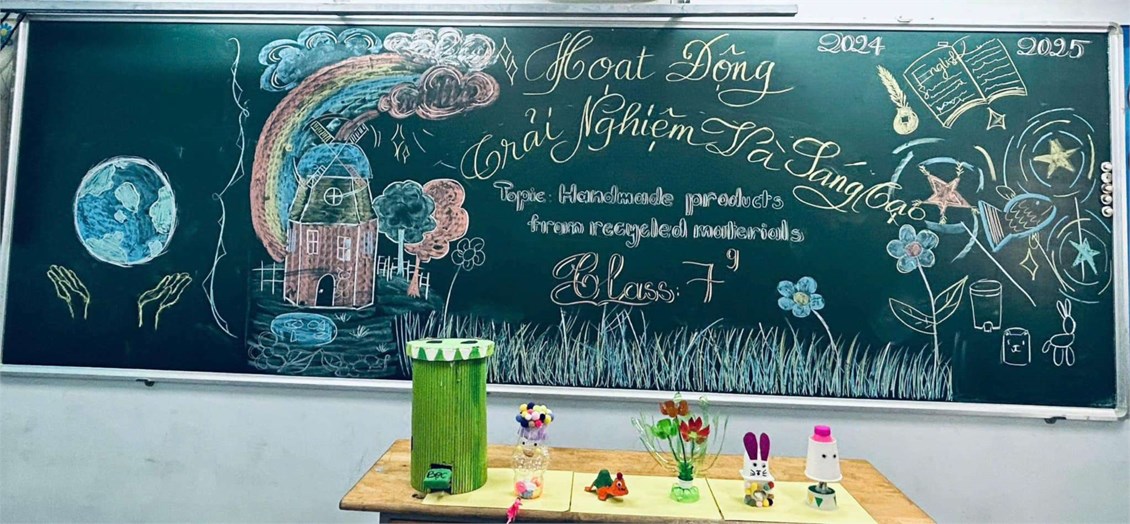 Hoạt Động
2024
2025
English
Trải Nghiệm Và Sáng Tạo
Topic: Handmade products
from recycled materials
Class: 7⁹